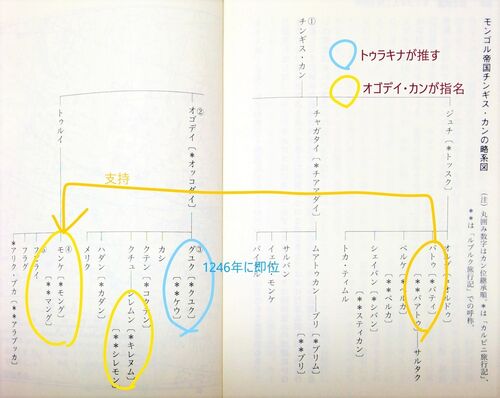 モンゴル帝国チンギス・カンの略系図
(注) 丸囲み数字はカン位継承順、*は「カルピニ旅行記」、
**は「ルブルク旅行記」での呼称。
トゥラキナが推す
オゴデイ・カンが指名
支持
1246年に即位
①
チンギス・カン
ジュチ〔*トッスク〕
チャガタイ〔*チアアダイ〕
②
オゴデイ〔*オッコダイ〕
トゥルイ
バトゥ〔*バティ〕〔**バアトゥ〕
サルタク
ベルケ
〔**ベルカ〕
シェイバン〔*シバン〕
〔**スティカン〕
トカ・ティムル
ムアトゥカン
ブリ〔*ブリム〕
〔**ブリ〕
サルバン
イェス・モンケ
③
グユク〔*クユク〕
〔**ケウ〕
カシ
クテン〔*コクテン〕
クチュ
シレムン〔*キレヌム〕
〔**シレモン〕
ハダン〔*カダン〕
メリク
④
モンケ〔*モング〕
〔**マング〕
フビライ
フラグ
*アリク・ブカ〔**アラブッカ〕